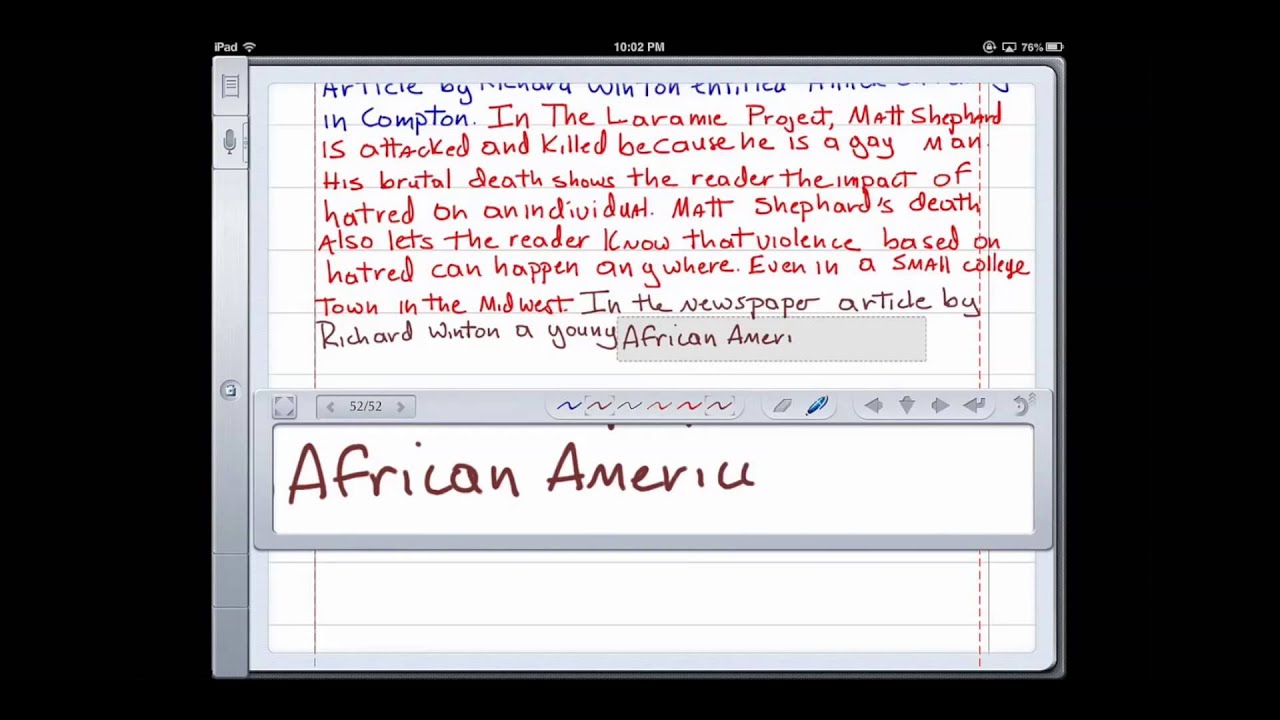 iPad 10:02 PM 76%
Article by Richard Winton entitled
in Compton. In The Laramie Project, Matt Shephard
is attacked and killed because he is a gay man.
His brutal death shows the reader the impact of
hatred on an individual. Matt Shephard's death
Also lets the reader know that violence based on
hatred can happen anywhere. Even in a small college
Town in the Midwest. In the newspaper article by
Richard Winton a young African Ameri
52/52
African Americ